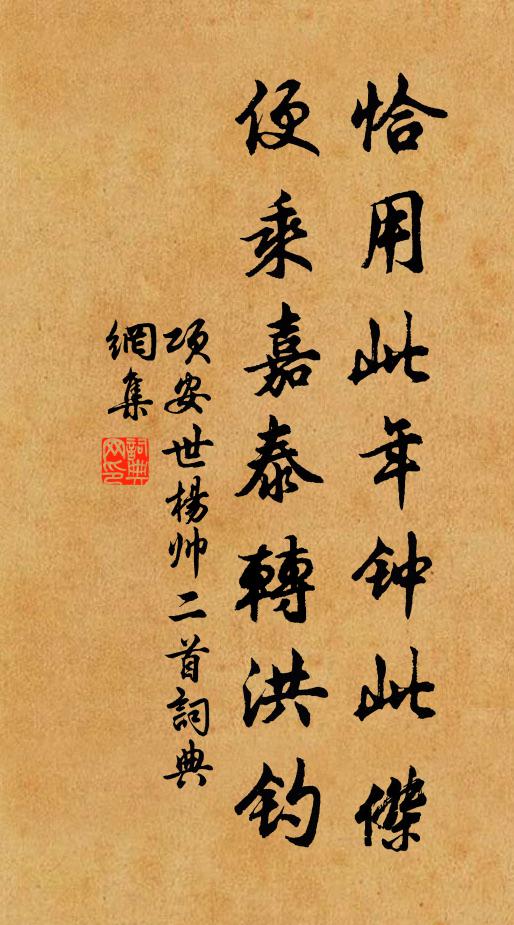 恰用此年钟此傑
便乘嘉泰轉洪鈞
項安世楊帅二首詞典
網集
詞典网印